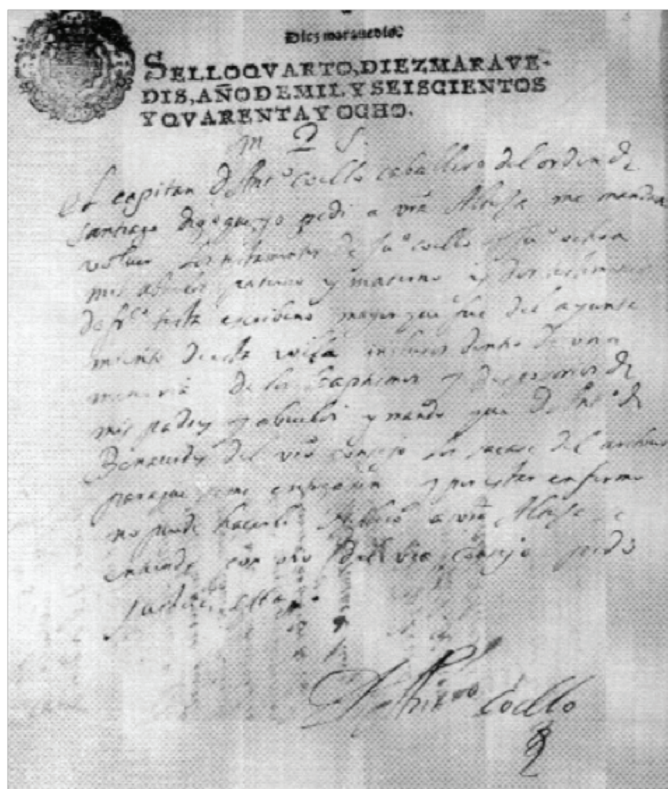 Diez maravedis.
SELLO QVARTO, DIEZ MARAVE-
DIS, AÑO DE MIL Y SEISCIENTOS
Y QVARENTA Y OCHO.
M P S.
El capitan D Antº coello caballero del orden de
santiago digo que yo pedi a vra Alteza me mandara
volver los testamentos de Juº coello y Juº ochoa
mis abuelos paterno y materno y
de frcº testa escribano mayor que fue del ayunta
miento desta villa inclusos dentro de una
memoria de los baptismos y de
mis padres y abuelos y mando que D Antº de
del vro consejo los sacase del archivo
para que se me y por estar enfermo
no puede hacerlo suplico a vra Alteza se
entienda con otro del vro consejo pido
justicia etta.
D Antonio Coello